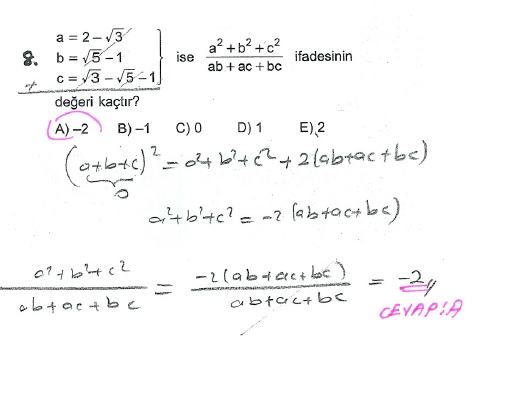 8.
a = 2 – √3
b = √5 – 1
c = √3 – √5 – 1
+
ise (a² + b² + c²)/(ab + ac + bc) ifadesinin
değeri kaçtır?
A) –2 B) –1 C) 0 D) 1 E) 2
(a+b+c)² = a²+b²+c²+2(ab+ac+bc)
0
a²+b²+c² = -2(ab+ac+bc)
(a²+b²+c²)/(ab+ac+bc) = (-2(ab+ac+bc))/(ab+ac+bc) = -2//
CEVAP:A